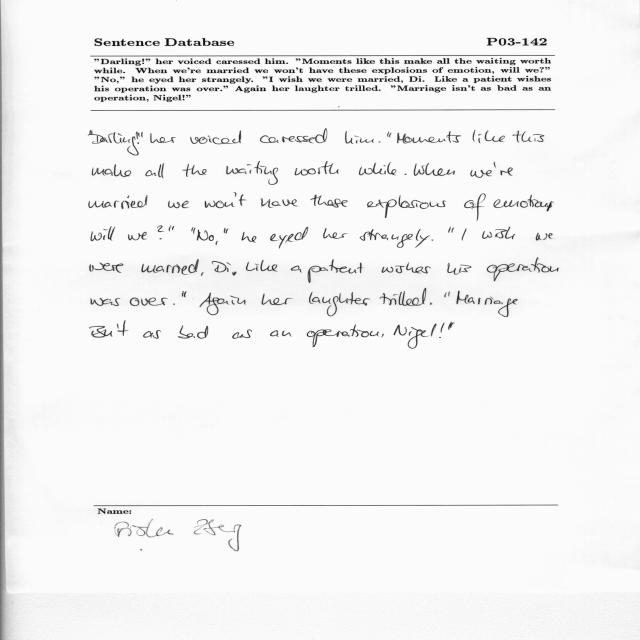 Sentence Database P03-142
"Darling!" her voiced caressed him. "Moments like this make all the waiting worth
while. When we're married we won't have these explosions of emotion, will we?"
"No," he eyed her strangely. "I wish we were married, Di. Like a patient wishes
his operation was over." Again her laughter trilled. "Marriage isn't as bad as an
operation, Nigel!"
"Darling!" her voiced caressed him. "Moments like this
make all the waiting worth while. When we're
married we won't have these explosions of emotion,
will we?" "No," he eyed her strangely. "I wish we
were married, Di. Like a patient wishes his operation
was over." Again her laughter trilled. "Marriage
isn't as bad as an operation, Nigel!!"
Name: